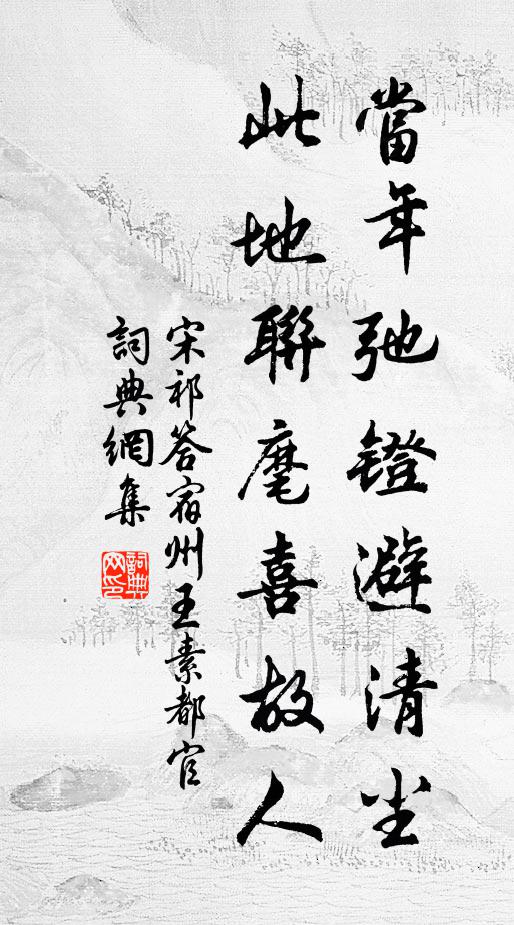 當年弛鐙避清尘
此地聯麾喜故人
宋祁答宿州王素都官
詞典網集
詞典
网印